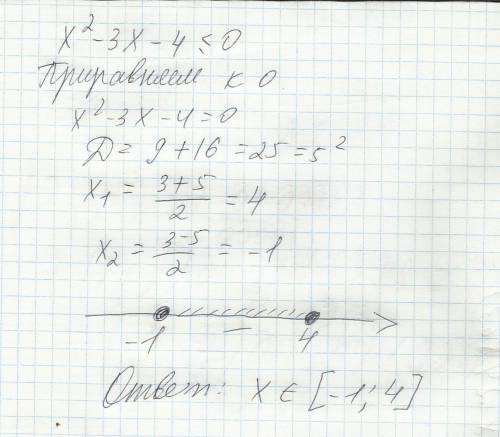 x² - 3x - 4 ≤ 0
Приравняем к 0.
x² - 3x - 4 = 0
Д = 9 + 16 = 25 = 5²
x₁ = (3+5)/2 = 4
x₂ = (3-5)/2 = -1
-1 - 4
Ответ: x ∈ [-1; 4]